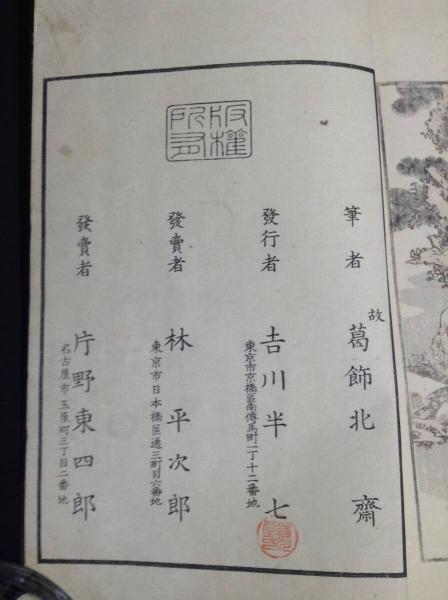 版權所有
筆者
故 葛飾北齋
發行者
東京市京橋區南傳馬町一丁十二番地
吉川半七
發賣者
東京市日本橋區通三町目六番地
林平次郎
發賣者
名古屋市玉屋町三丁目二番地
片野東四郎